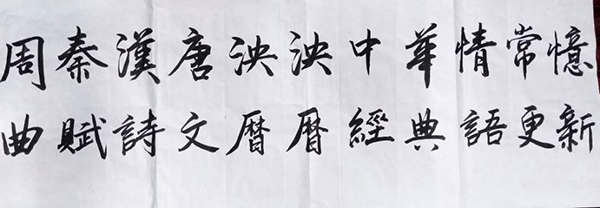 周秦漢唐泱泱中華情常憶
曲賦詩文暦暦經典語更新